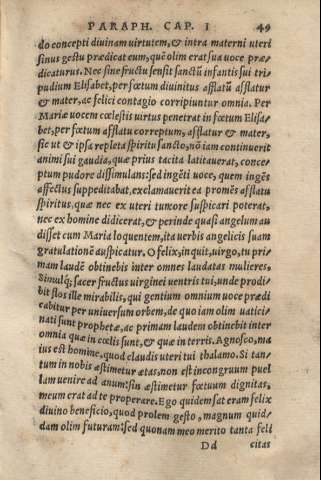 PARAPH. CAP. I 49
do concepti diuinam uirtutem, & intra materni uteri
sinus gestu prædicat eum, quē olim erat sua uoce præ-
dicaturus. Nec sine fructu sensit sanctū infantis sui tri-
pudium Elisabet, per fœtum diuinitus afflatū afflatur
& mater, ac felici contagio corripiuntur omnia. Per
Mariæ uocem cœlestis uirtus peneirat in fœtum Elisa-
bet, per fœtum afflatu correptum, afflatur & mater,
sic ut & ipsa repleta spiritu sancto, nō iam continuerit
animi sui gaudia, quæ prius tacita latitauerat, conce-
ptum pudore dissimulans: sed ingēti uoce, quem ingēs
affectus suppeditabat, exclamauerit ea promēs afflatu
spiritus, quæ nec ex uteri tumore suspicari poterat,
nec ex homine didicerat, & perinde quasi angelum au
disset cum Maria loquentem, ita uerbis angelicis suam
gratulationē auspicatur. O felix, inquit, uirgo, tu pri-
mam laudē obtinebis inter omnes laudatas mulieres.
Simulq; sacer fructus uirginei uentris tui, unde prodi-
bit flos ille mirabilis, qui gentium omnium uoce prædi
cabitur per uniuersum orbem, de quo iam olim uatici-
nati sunt prophetæ, ac primam laudem obtinebit inter
omnia quæ in cœlis sunt, & quæ in terris. Agnosco, ma
ius est homine, quod claudis uteri tui thalamo. Si tan-
tum in nobis æstimetur ætas, non est incongruum puel
lam uenire ad anum: sin æstimetur fœtuum dignitas,
meum erat ad te properare. Ego quidem sat eram felix
diuino beneficio, quod prolem gesto, magnum qui-
dam olim futuram: sed quonam meo merito tanta feli
Dd citas